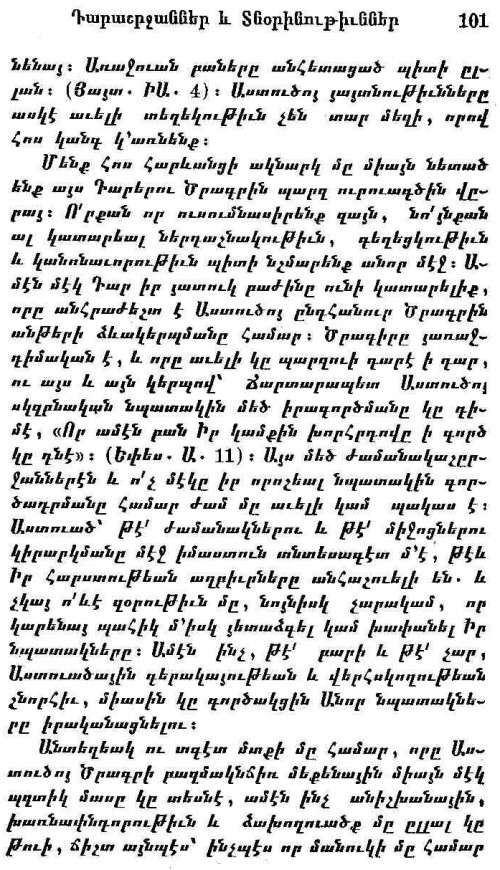 Դարաշրջաններ և Տնօրինութիւններ 101
նենայ։ Առաջուան բաները անհետացած պիտի ըլ-
լան։ (Յայտ. ԻԱ. 4)։ Աստուծոյ յայտնութիւնները
ասկէ աւելի տեղեկութիւն չեն տար մեզի, որով
հոս կանգ կ՚առնենք։
Մենք հոս հարևանցի ակնարկ մը միայն նետած
ենք այս Դարերու Ծրագրին պարզ ուրուագծին վը-
րայ։ Ո՛րքան որ ուսումնասիրենք զայն, նո՛յնքան
ալ կատարեալ ներդաշնակութիւն, գեղեցկութիւն
և կանոնաւորութիւն պիտի նշմարենք անոր մէջ։ Ա-
մէն մէկ Դար իր յատուկ բաժինը ունի կատարելիք,
որը անհրաժեշտ է Աստուծոյ ընդհանուր Ծրագրին
անթերի ձևակերպմանը համար։ Ծրագիրը յառաջ-
դիմական է, և որը աւելի կը պարզուի դարէ ի դար,
ու այս և այն կերպով՝ Ճարտարապետ Աստուծոյ
սկզբնական նպատակին մեծ իրագործմանը կը դի-
մէ, «Որ ամէն բան Իր կամքին խորհրդովը ի գործ
կը դնէ»։ (Եփես. Ա. 11)։ Այս մեծ ժամանակաշըր-
ջաններէն և ո՛չ մէկը իր որոշեալ նպատակին գոր-
ծադրմանը համար ժամ մը աւելի կամ պակաս է։
Աստուած՝ թէ՛ ժամանակներու և թէ՛ միջոցներու
կիրարկմանը մէջ իմաստուն տնտեսագէտ մ՚է, թէև
Իր հարստութեան աղբիւրները անհաշուելի են. և
չկայ ո՛ևէ զօրութիւն մը, նոյնիսկ չարակամ, որ
կարենայ պահիկ մ՚իսկ յետաձգել կամ խափանել Իր
նպատակները։ Ամէն ինչ, թէ՛ բարի և թէ՛ չար,
Աստուածային դերակայութեան և վերհսկողութեան
շնորհիւ, միասին կը գործակցին Անոր նպատակնե-
րը իրականացնելու։
Անտեղեակ ու տգէտ մտքի մը համար, որը Աս-
տուծոյ Ծրագրի բազմակնճիռ մեքենային միայն մէկ
պզտիկ մասը կը տեսնէ, ամէն ինչ անիշխանային,
խառնափնդորութիւն և ձախողուածք մը ըլլալ կը
թուի, ճիշտ այնպէս՝ ինչպէս որ մանուկի մը համար